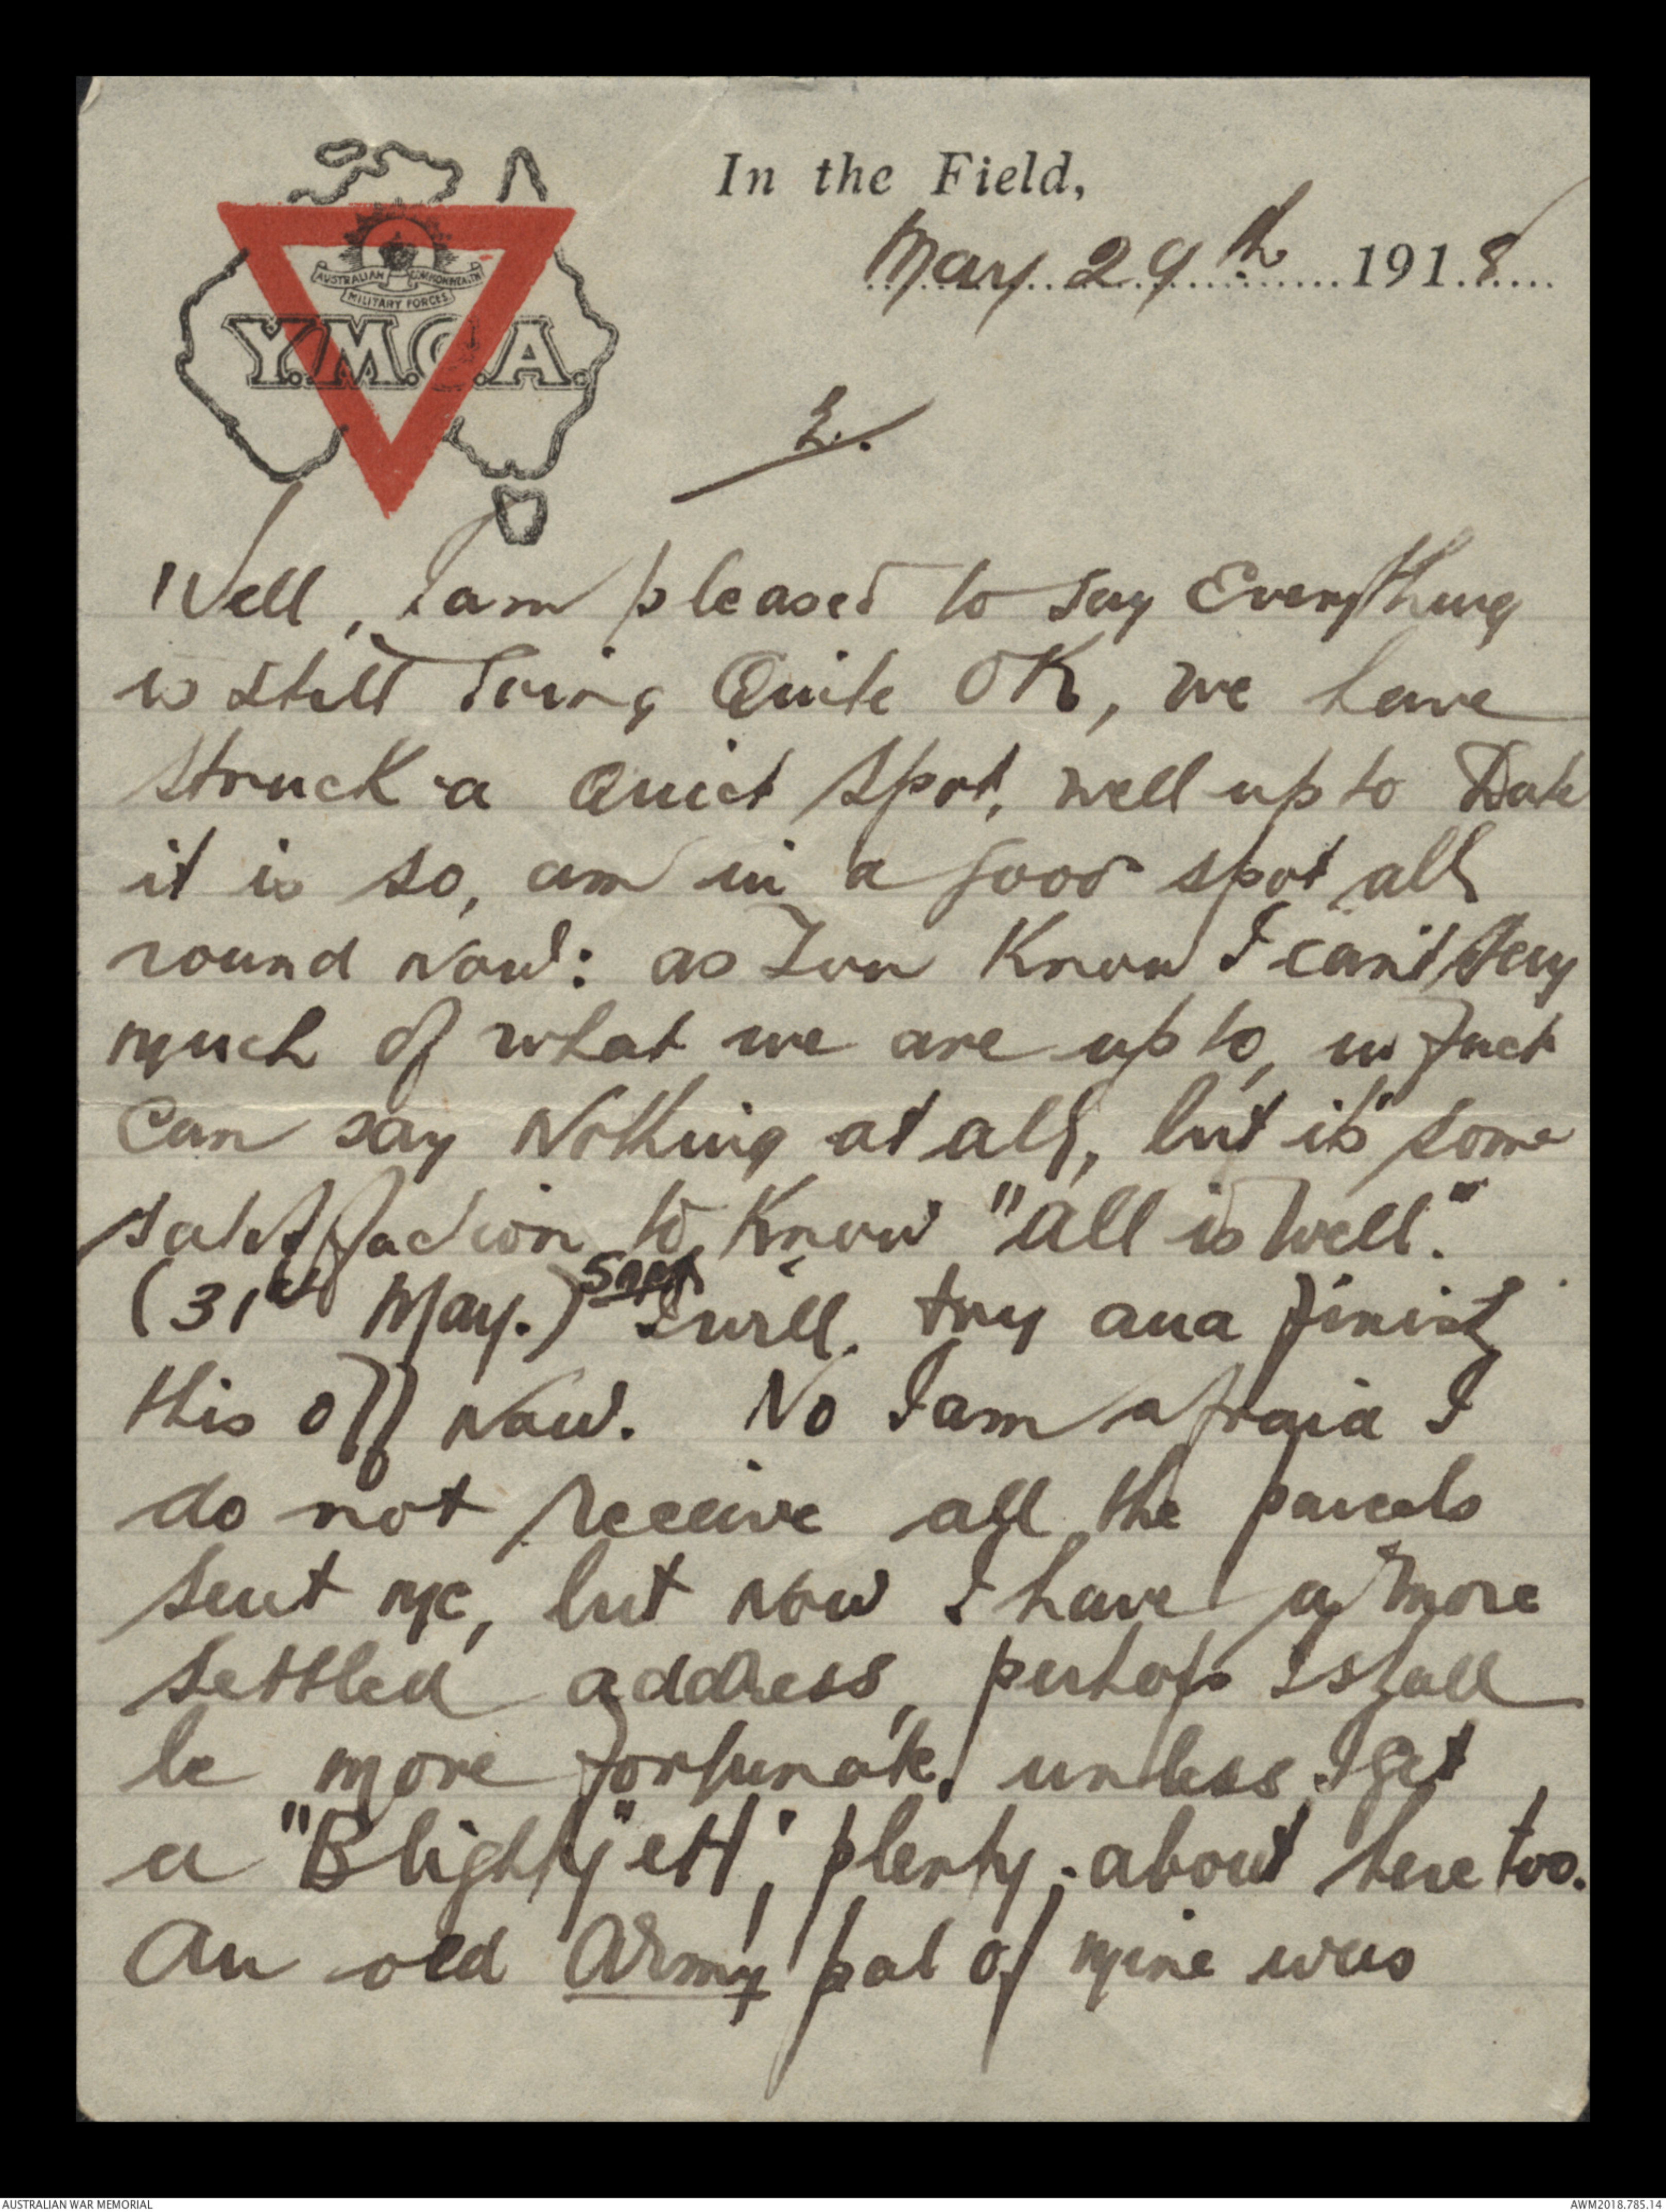 In the Field,
May 29th 1918
AUSTRALIAN COMMONWEALTH
MILITARY FORCES
Y.M.C.A.
2.
Well, I am pleased to say Everything
is still Going Quite OK, we have
struck a Quiet spot, well up to Date
it is so, am in a good spot all
round Now: as You Know I can't say
much of what we are up to, in fact
Can say Nothing at all, but it's some
satisfaction to Know "all is Well."
(31st May.) I will try and finish
this off Now. No I am afraid I
do not receive all the parcels
sent me, but Now I have a more
settled address, perhaps I shall
be more fortunate, unless I get
a "Blighty" ett, plenty about here too.
An old Army pal of mine was
AUSTRALIAN WAR MEMORIAL
AWM2018.785.14